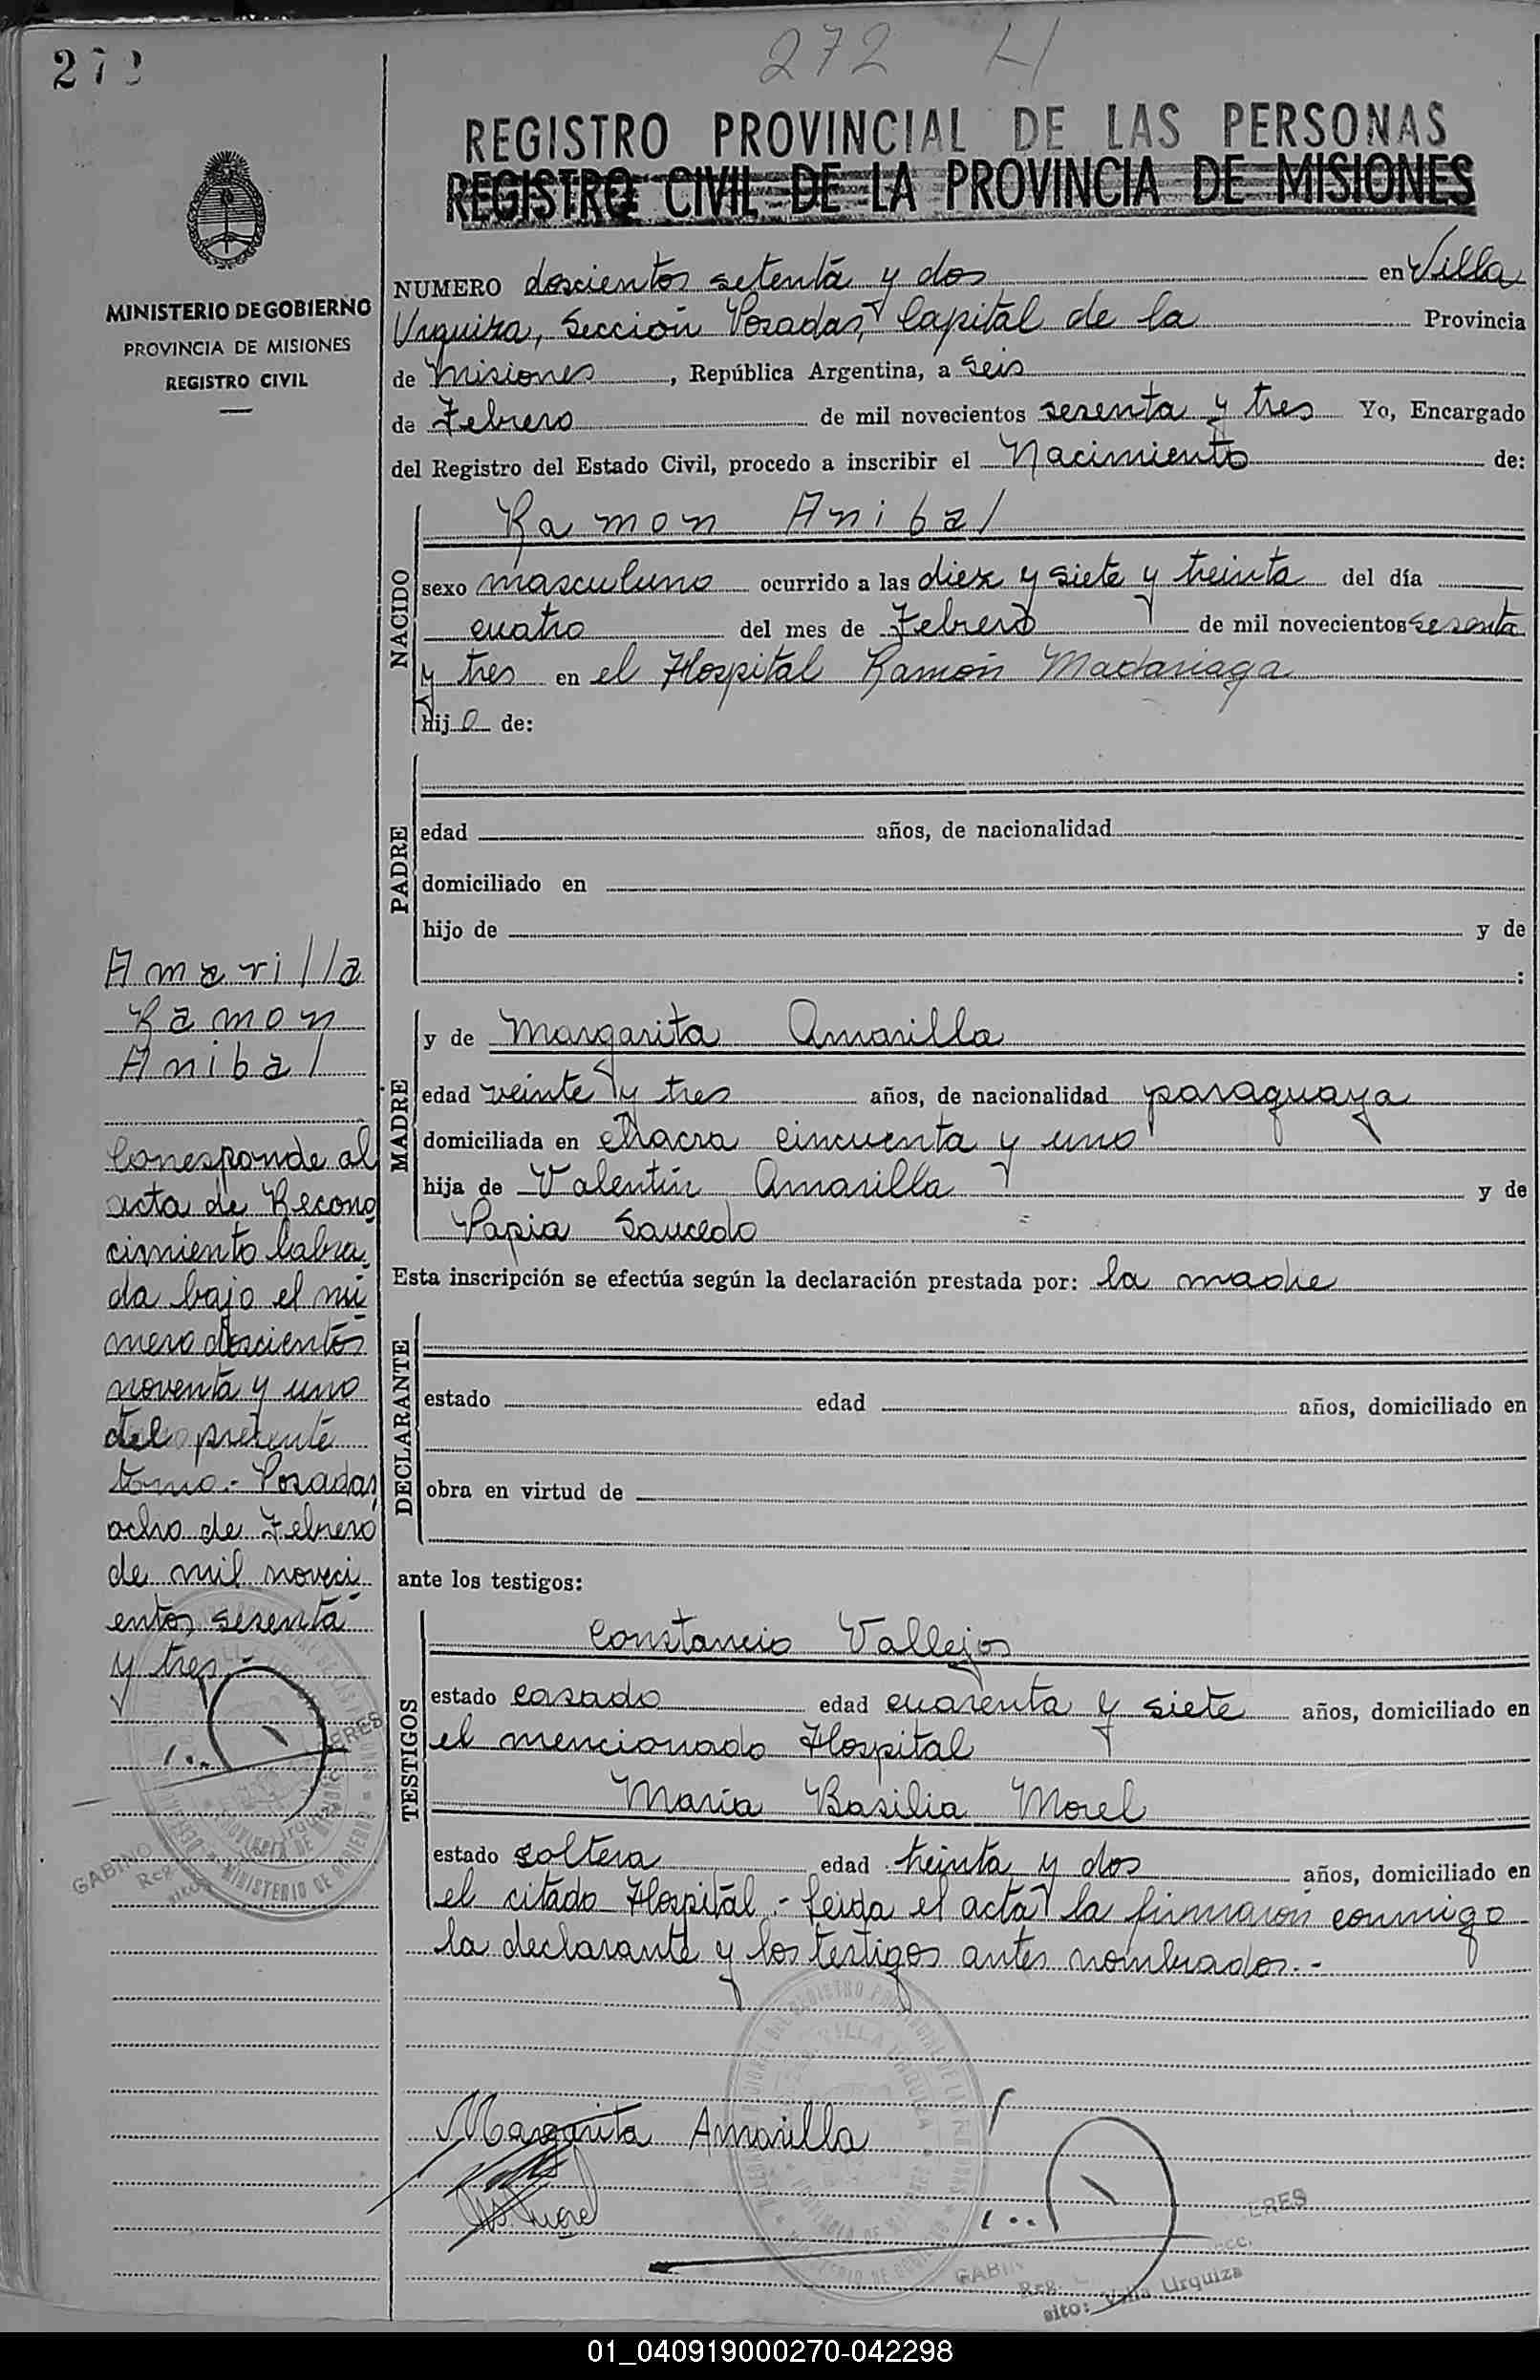 272
272 H
REGISTRO PROVINCIAL DE LAS PERSONAS
REGISTRO CIVIL DE LA PROVINCIA DE MISIONES
MINISTERIO DE GOBIERNO
PROVINCIA DE MISIONES
REGISTRO CIVIL
NUMERO doscientos setenta y dos en Villa
Urquiza, Sección Posadas, Capital de la Provincia
de Misiones, República Argentina, a seis
de Febrero de mil novecientos sesenta y tres Yo, Encargado
del Registro del Estado Civil, procedo a inscribir el Nacimiento de:
NACIDO
Ramon Anibal
sexo masculino ocurrido a las diez y siete y treinta del día
cuatro del mes de Febrero de mil novecientos sesenta
y tres en el Hospital Ramón Madariaga
hijo de:
PADRE
edad años, de nacionalidad
domiciliado en
hijo de y de
:
MADRE
y de Margarita Amarilla
edad veinte y tres años, de nacionalidad paraguaya
domiciliada en chacra cincuenta y uno
hija de Valentín Amarilla y de
Papia Saucedo
Esta inscripción se efectúa según la declaración prestada por: la madre
DECLARANTE
estado edad años, domiciliado en
obra en virtud de
ante los testigos:
TESTIGOS
Constancio Vallejos
estado casado edad cuarenta y siete años, domiciliado en
el mencionado Hospital
María Basilia Morel
estado soltera edad treinta y dos años, domiciliado en
el citado Hospital.- Leida el acta la firmaron conmigo
la declarante y los testigos antes nombrados.-
Margarita Amarilla
Amarilla
Ramon
Anibal
Corresponde al
acta de Recono
cimiento labra
da bajo el nú
mero doscientos
noventa y uno
del presente
tomo.- Posadas,
ocho de Febrero
de mil noveci
entos sesenta
y tres.-
GABINO
ERES
MINISTERIO DE GOBIERNO
ERES
GABIN
Reg.
sito: Villa Urquiza
01_040919000270-042298